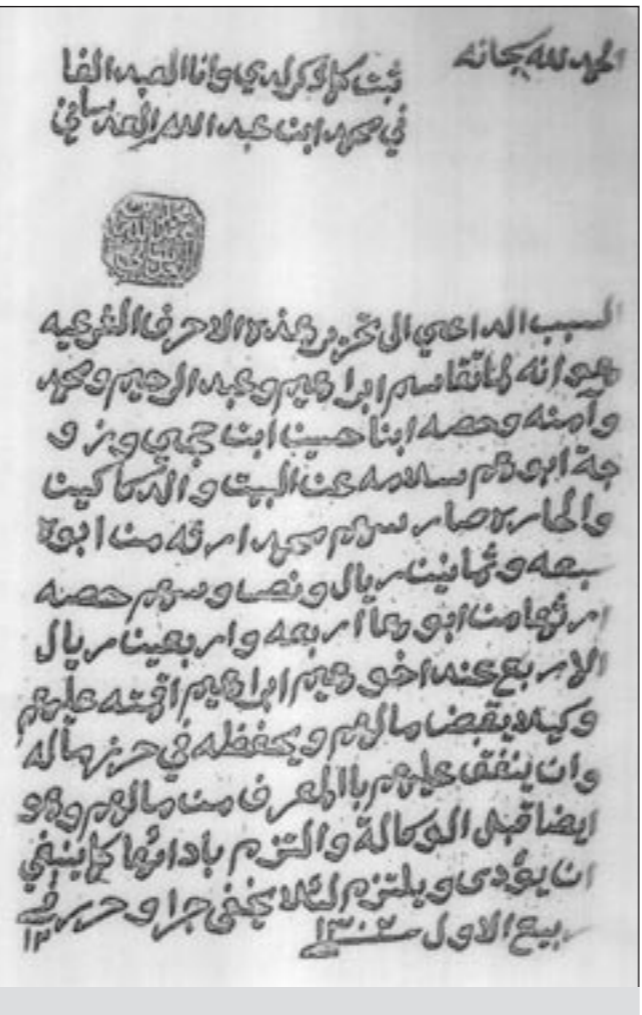 الحمد لله سبحانه
ثبت كما ذكر لدي وانا العبد الفا
ني محمد ابن عبد الله
السبب الداعي الى تحرير هذه الاحرف الشرعيه
هو انه لما تقاسم ابراهيم وعبد الرحيم ومحمد
وآمنه وحصه ابنا حسين ابن وزو
جة ابوهم سلامه عن البيت والدكاكين
والحاره صار سهم محمد ارثه من ابوه
سبعه وثمانين ريال ونصف وسهم حصه
ارثها من ابوها اربعه واربعين ريال
الا ربع عند اخوهم ابراهيم اقمته عليهم
وكيلا يقبض مالهم ويحفظه في حرز
وان ينفق عليهم باالمعرف من مالهم وهو
ايضا قبل الوكالة والتزم بادائها كما ينبغي
ان يؤدى ويلتزم لئلا يخفى جرا وحرر في ١٢
ربيع الاول سنة ١٣٠٢